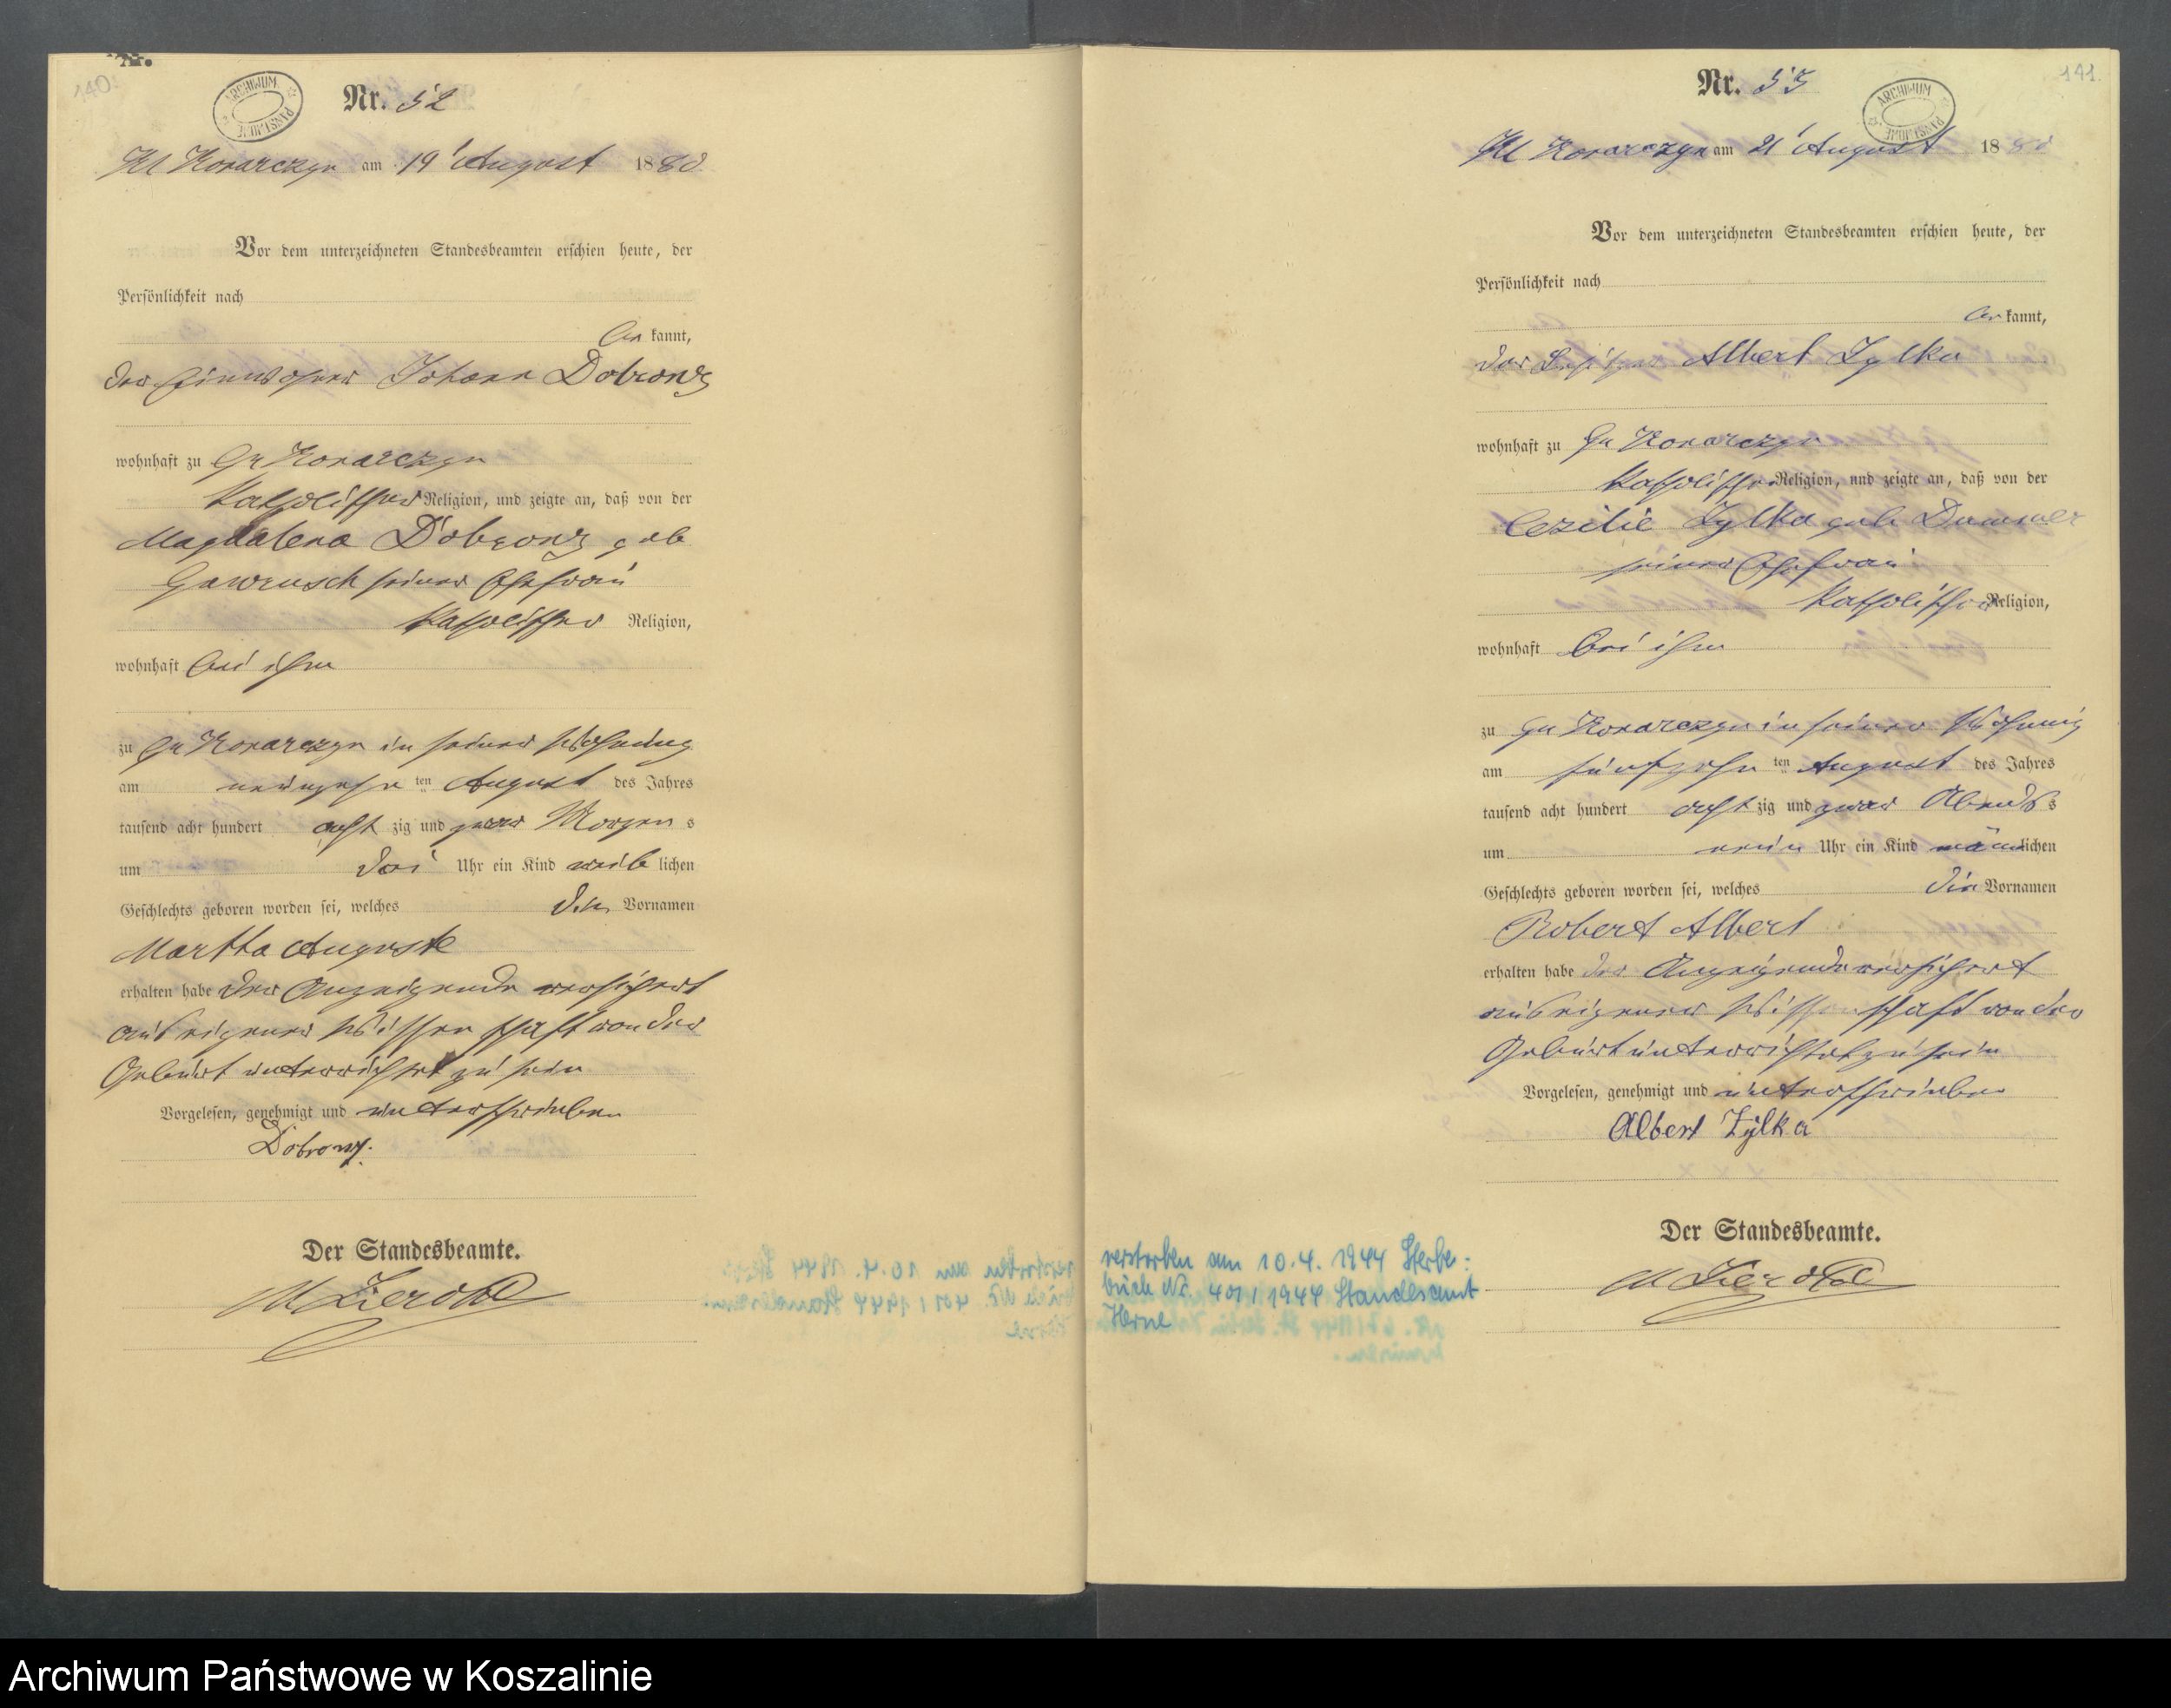 140.
Nr.
ARCHIWUM PAŃSTWOWE
Nr. 52
Kl Konarczyn am 19' August 1880
Vor dem unterzeichneten Standesbeamten erschien heute, der
Persönlichkeit nach
be kannt,
der Einwohner Johann Dobronz
wohnhaft zu Gr Konarczyn
katholischer Religion, und zeigte an, daß von der
Magdalena Dobronz geb
Gawrusch seiner Ehefrau
katholischer Religion,
wohnhaft bei ihm
zu Gr Konarczyn in seiner Wohnung
am neunzehn ten August des Jahres
tausend acht hundert acht zig und zwar Morgen s
um drei Uhr ein Kind weib lichen
Geschlechts geboren worden sei, welches den Vornamen
Martha Auguste
erhalten habe der Anzeigende versichert
aus eigener Wissenschaft von der
Geburt unterrichtet zu sein
Vorgelesen, genehmigt und unterschrieben
Dobronz.
Der Standesbeamte.
141.
Nr. 53
ARCHIWUM PAŃSTWOWE
Kl Konarczyn am 21' August 1880
Vor dem unterzeichneten Standesbeamten erschien heute, der
Persönlichkeit nach
be kannt,
der Besitzer Albert Zylka
wohnhaft zu Gr Konarczyn
katholischer Religion, und zeigte an, daß von der
Cezilie Zylka geb Dummer
seiner Ehefrau
katholischer Religion,
wohnhaft bei ihm
zu Gr Konarczyn in seiner Wohnung
am fünfzehn ten August des Jahres
tausend acht hundert acht zig und zwar Abends s
um neun Uhr ein Kind männlichen
Geschlechts geboren worden sei, welches die Vornamen
Robert Albert
erhalten habe der Anzeigende versichert
aus eigener Wissenschaft von der
Geburt unterrichtet zu sein
Vorgelesen, genehmigt und unterschrieben
Albert Zylka
Der Standesbeamte.
verstorben am 10.4.1944 Sterbe:
buch Nr. 401/1944 Standesamt
Herne
Archiwum Państwowe w Koszalinie